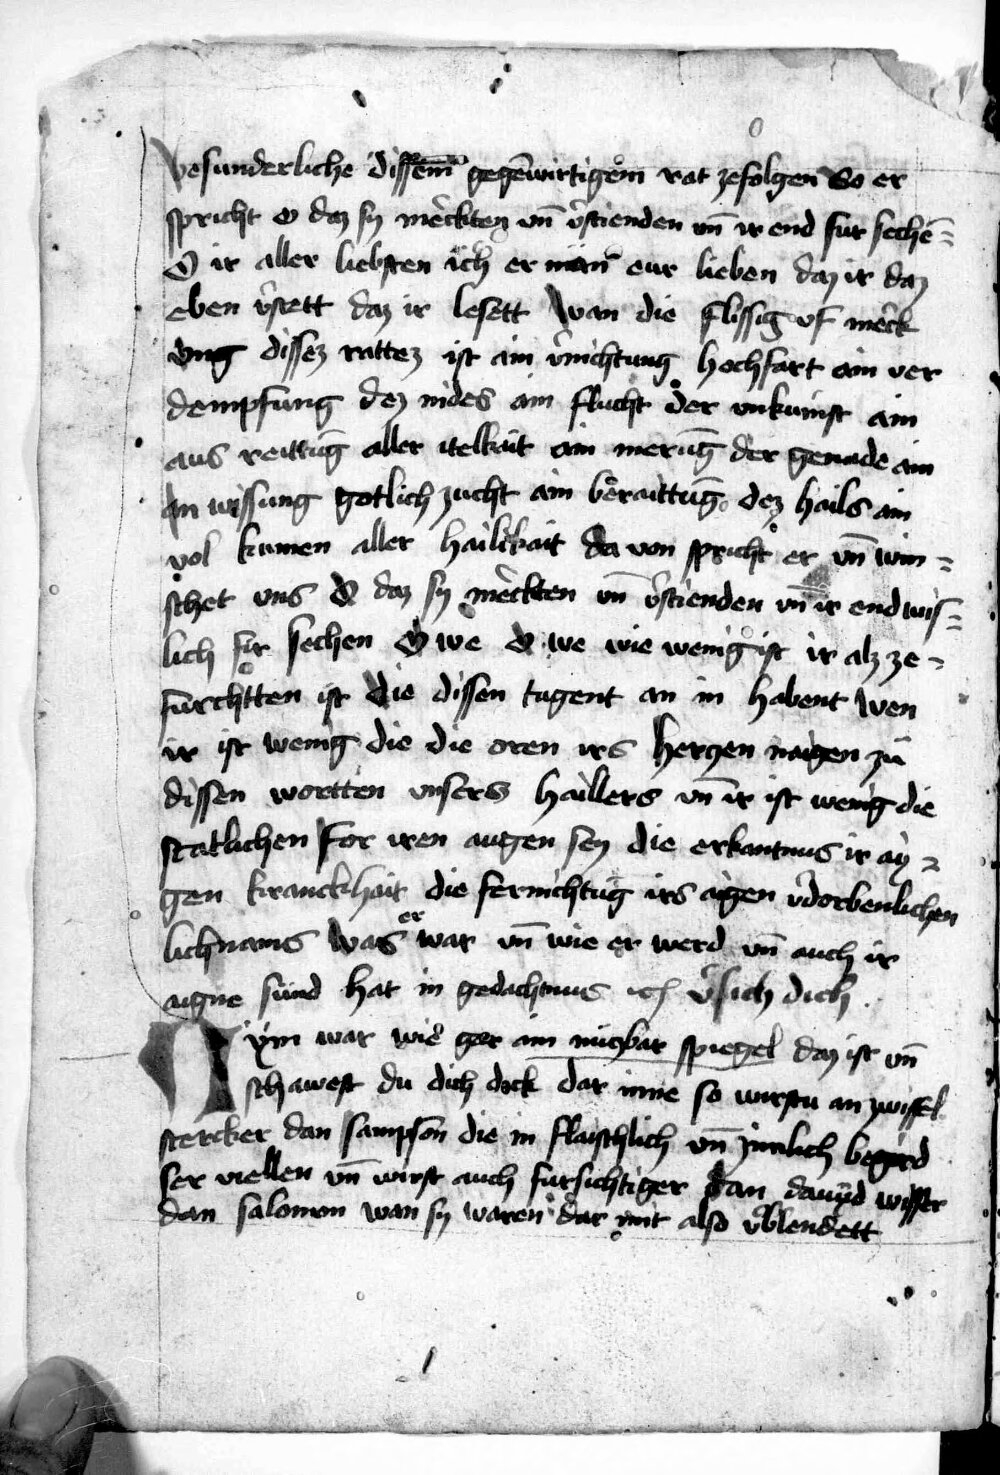 besunderliche dissem̄ gegēwirtigem rat zefolgen So er
spricht o daz sy mèckten vn̄ v̉stienden vn̄ ir end fur sechē=
O ir aller liebsten ich er man̄ eur lieben daz ir daz
eben v̉stett daz ir lesett wan die flissig vf mèck
ung dissez rattez ist ain v̉nichtung hochfart ain ver
dempfung dez nides ain flucht der vnkuinst ain
aus reittūg aller itelkait ain merūg der genade ain
an wissung gotlich zucht ain beraittūg dez hails ain
vol kumen aller hailikait da von spricht er vn̄ win=
schet vns O daz sy mèckten vn̄ v̉stienden vn̄ ir end wis=
lich fir sechen O we O we wie wenig ist ir alz ze=
furchtten ist die dissen tugent an in habent wen
ir ist wenig die die oren irs herczen naigen zu
dissen wortten vnsers haillers vn̄ ir ist wenig die
statlichen for iren augen sey die erkantnus ir ay=
gen kranckhait die fernichtūg irs aigen v̉dorbenlichen
lichnams was er war vn̄ wie er werd vn̄ auch ir
aigne sünd hat in gedachtnus ich v̉sich dich
Nym war wie gar ain nuczbar spiegel daz ist vn̄
schawest du dich dick dar inne so wurstu an zwiffel
stercker dan sampson die in flaischlich vn̄ zimlich begird
ser viellen vn̄ wirst auch fursichtiger dan dauyd wisser
dan salomon wan sy waren dar mit also v̉blendett